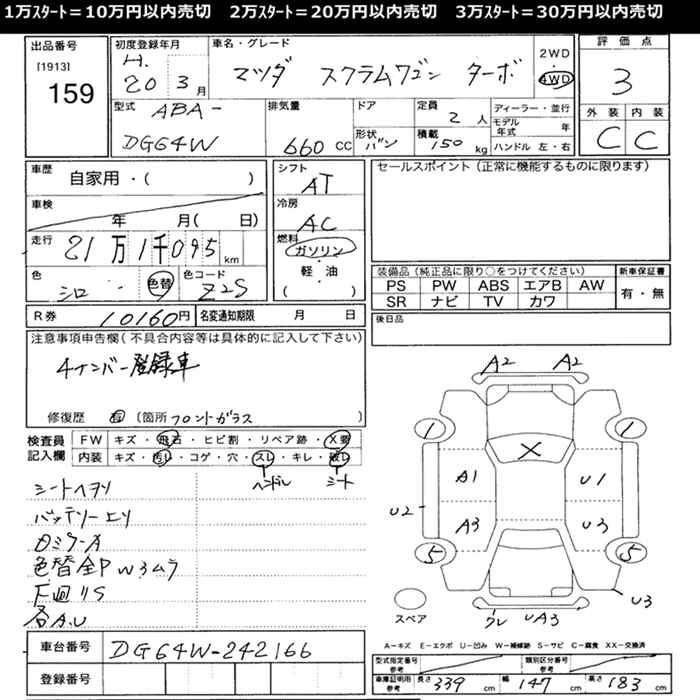 1万スタート=10万円以内売切 2万スタート=20万円以内売切 3万スタート=30万円以内売切
出品番号
[1913]
159
初度登録年月
H.
20 3月
車名・グレード
マツダ スクラムワゴン ターボ
2WD
4WD
評価点
3
外装 内装
C C
型式
ABA-
DG64W
排気量
660 CC
ドア
形状
バン
定員
2人
積載
150 kg
ディーラー・並行
モデル年式 年
ハンドル 左・右
車歴
自家用・( )
車検
年 月( 日)
走行
21万1千095 km
色
シロ
色替
色コード
Z2S
シフト
AT
冷房
AC
燃料
ガソリン
軽油
( )
セールスポイント(正常に機能するものに限ります)
装備品(純正品に限り○をつけてください)
PS PW ABS エアB AW
SR ナビ TV カワ
新車保証書
有・無
R券
10160円
名変通知期限 月 日
後日品
注意事項申告欄(不具合内容等は具体的に記入して下さい)
4ナンバー登録車
修復歴 (箇所 フロントガラス
検査員
記入欄
FW キズ・飛石・ヒビ割・リペア跡・X要
内装 キズ・汚レ・コゲ・穴・スレ・キレ・破レ
ハンドル シート
シートヘタリ
バッテリーエリ
色替全P Wろムラ
下廻りS
各A.U
A2 A2
1 1
X
A1 U1
U2
A3 U3
5 5
U3
スペア
ワレ UA3
A−キズ E−エクボ U−凹み W−補修跡 S−サビ C−腐食 XX−交換済
車台番号
DG64W-242166
登録番号
型式指定番号
参考
類別区分番号
参考
車庫証明用
参考
長さ 339 cm 幅 147 cm 高さ 183 cm